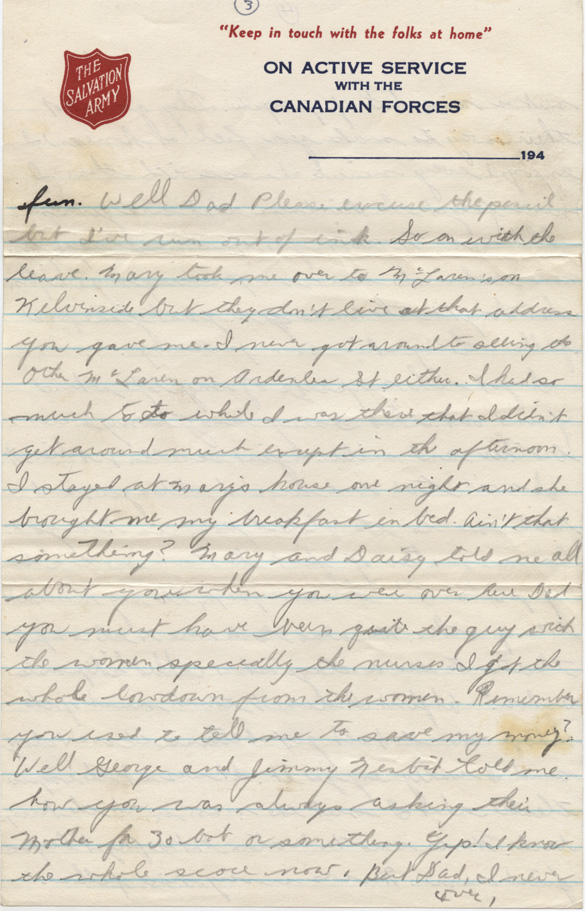 3
"Keep in touch with the folks at home"
THE
SALVATION
ARMY
ON ACTIVE SERVICE
WITH THE
CANADIAN FORCES
194
fun. Well Dad Please excuse the pencil
but I've run out of ink. So on with the
leave. Mary took me over to McLaren's on
Kelvinside but they don't live at that address
you gave me. I never got around to seeing the
Other McLaren on St either. I had so
much to do while I was there that I didn't
get around much except in the afternoon.
I stayed at Mary's house one night and she
brought me my breakfast in bed. Ain't that
something? Mary and Daisy told me all
about you when you were over here Dad
you must have been quite the guy with
the women specially the nurses I got the
whole lowdown from the women. Remember
you used to tell me to save my money?
Well George and Jimmy Nesbit told me
how you was always asking their
Mother for 30 bob or something. Yep! I know
the whole score now. But Dad, I never
over,